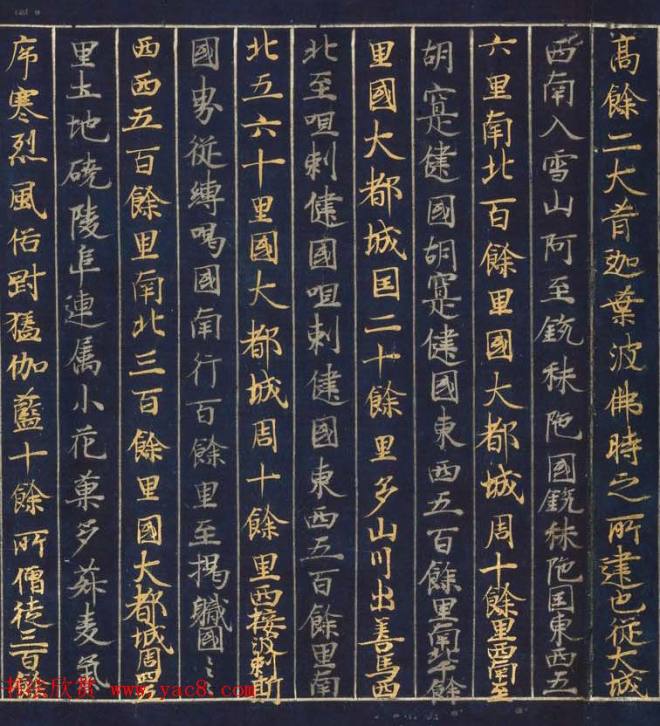 高餘二丈昔迦葉波佛時之所建也從大城
西南入雪山阿至銳秣陁國銳秣陁国東西五
六里南北百餘里國大都城周十餘里西南至
胡寔健國胡寔健國東西五百餘里南北千餘
里國大都城囯二十餘里多山川出善馬西
北至呾剌健國呾剌健國東西五百餘里南
北五六十里國大都城周十餘里西接波剌斯
國界從縛喝國南行百餘里至揭職國〻
西西五百餘里南北三百餘里國大都城周四
里土地磽陵阜連属小花菓多菽麦氣
序寒烈風俗對猛伽藍十餘所僧徒三百
书法欣赏 www.yac8.com